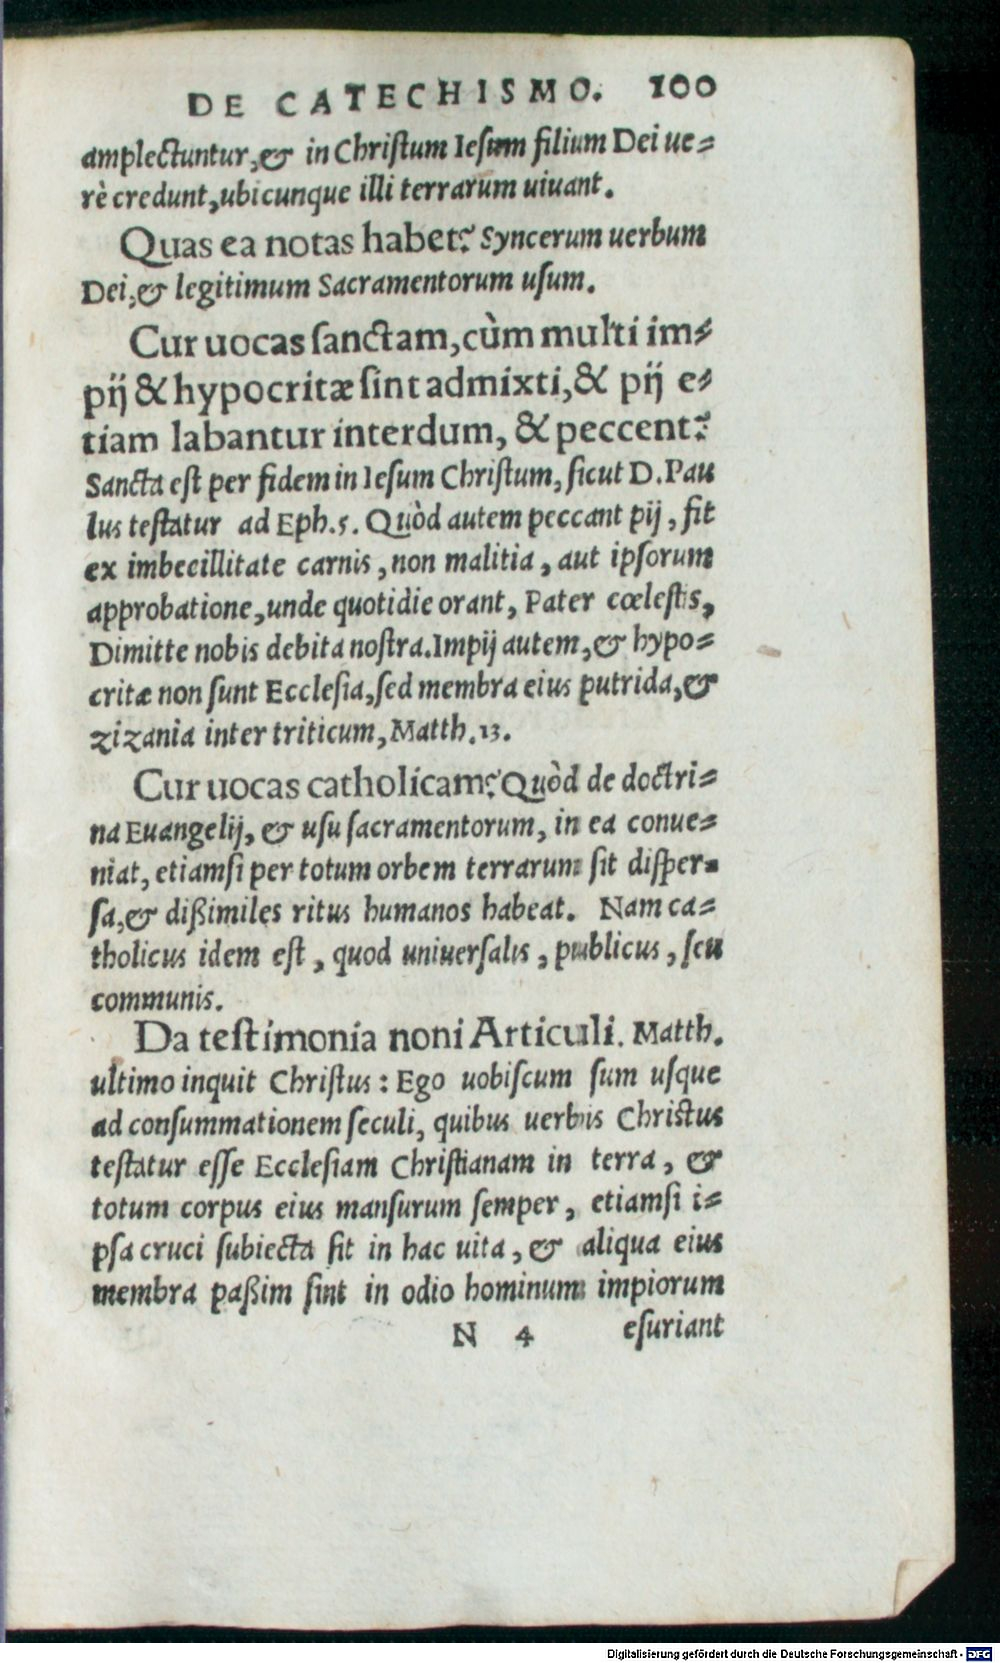 DE CATECHISMO. 100
amplectuntur, & in Christum Iesum filium Dei ue=
rè credunt, ubicunque illi terrarum uiuant.
Quas ea notas habet? Syncerum uerbum
Dei, & legitimum Sacramentorum usum.
Cur uocas sanctam, cùm multi im=
pij & hypocritæ sint admixti, & pij e=
tiam labantur interdum, & peccent?
Sancta est per fidem in Iesum Christum, sicut D. Pau
lus testatur ad Eph. 5. Quòd autem peccant pij, fit
ex imbecillitate carnis, non malitia, aut ipsorum
approbatione, unde quotidie orant, Pater cœlestis,
Dimitte nobis debita nostra. Impij autem, & hypo=
critæ non sunt Ecclesia, sed membra eius putrida, &
zizania inter triticum, Matth. 13.
Cur uocas catholicam? Quòd de doctri=
na Euangelij, & usu sacramentorum, in ea conue=
niat, etiamsi per totum orbem terrarum sit disper=
sa, & dißimiles ritus humanos habeat. Nam ca=
tholicus idem est, quod uniuersalis, publicus, seu
communis.
Da testimonia noni Articuli. Matth.
ultimo inquit Christus: Ego uobiscum sum usque
ad consummationem seculi, quibus uerbis Christus
testatur esse Ecclesiam Christianam in terra, &
totum corpus eius mansurum semper, etiamsi i=
psa cruci subiecta sit in hac uita, & aliqua eius
membra paßim sint in odio hominum impiorum
N 4 esuriant
Digitalisierung gefördert durch die Deutsche Forschungsgemeinschaft - DFG